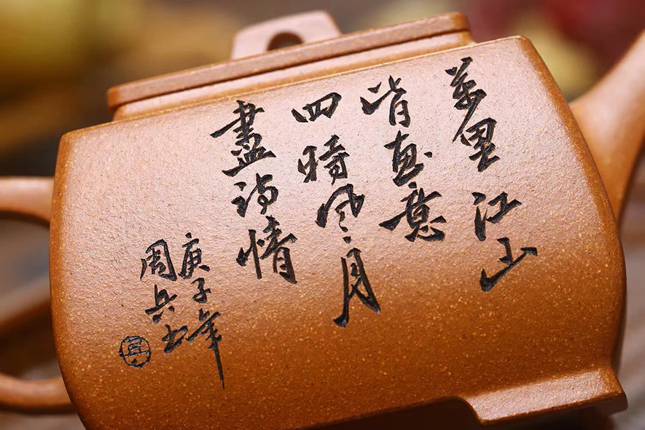 萬里江山
皆畫意
四時風月
盡詩情
庚子年
周兵书